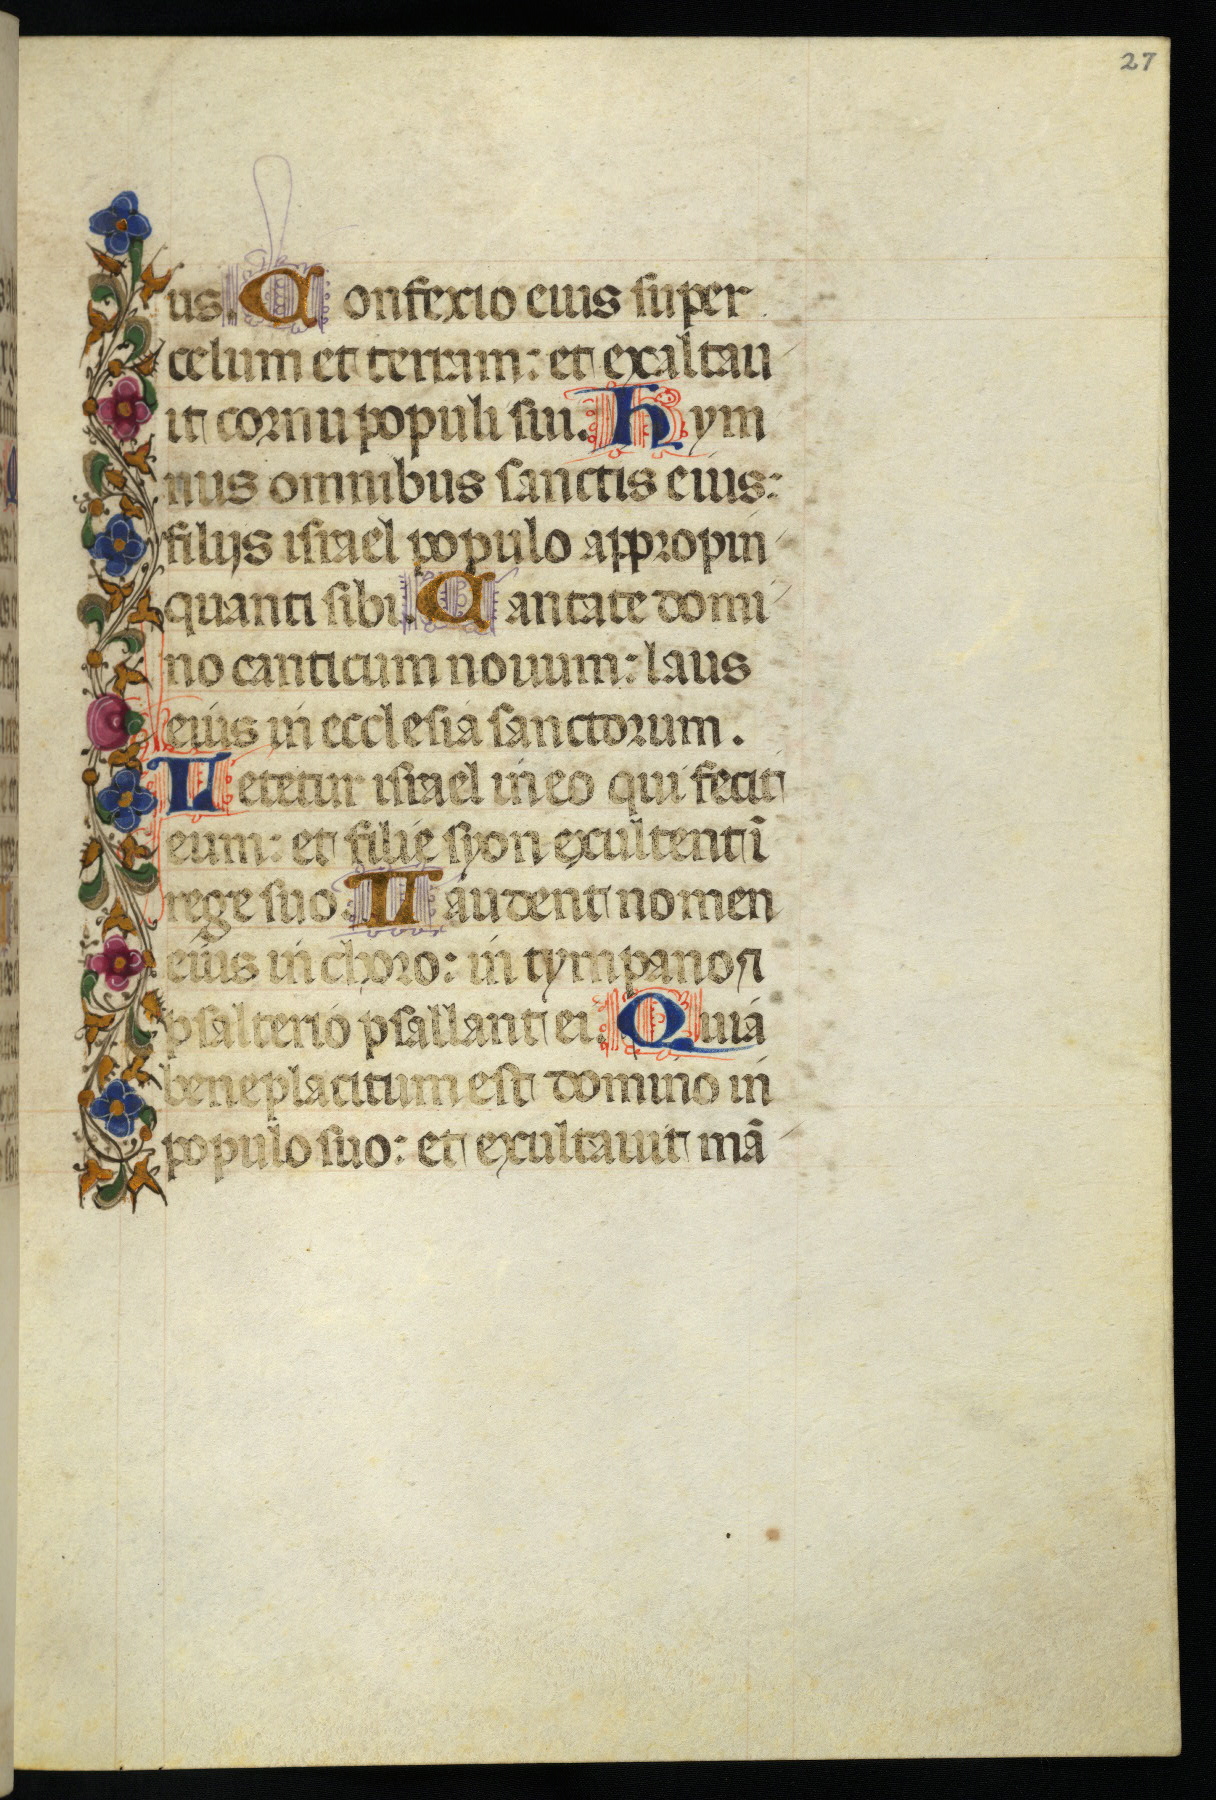 27
us. Confexio eius super
celum et terram: et exaltau
it cornu populi sui. Hym
nus omnibus sanctis eius:
filijs israel populo appropin
quanti sibi. Cantate domi
no canticum nouum: laus
eius in ecclesia sanctorum.
Letetur israel in eo qui fecit
eum: et filie syon exultent ī
rege suo. Laudent nomen
eius in choro: in tympano ⁊
psalterio psallant ei. Quia
beneplacitum est domino in
populo suo: et exultauit mā